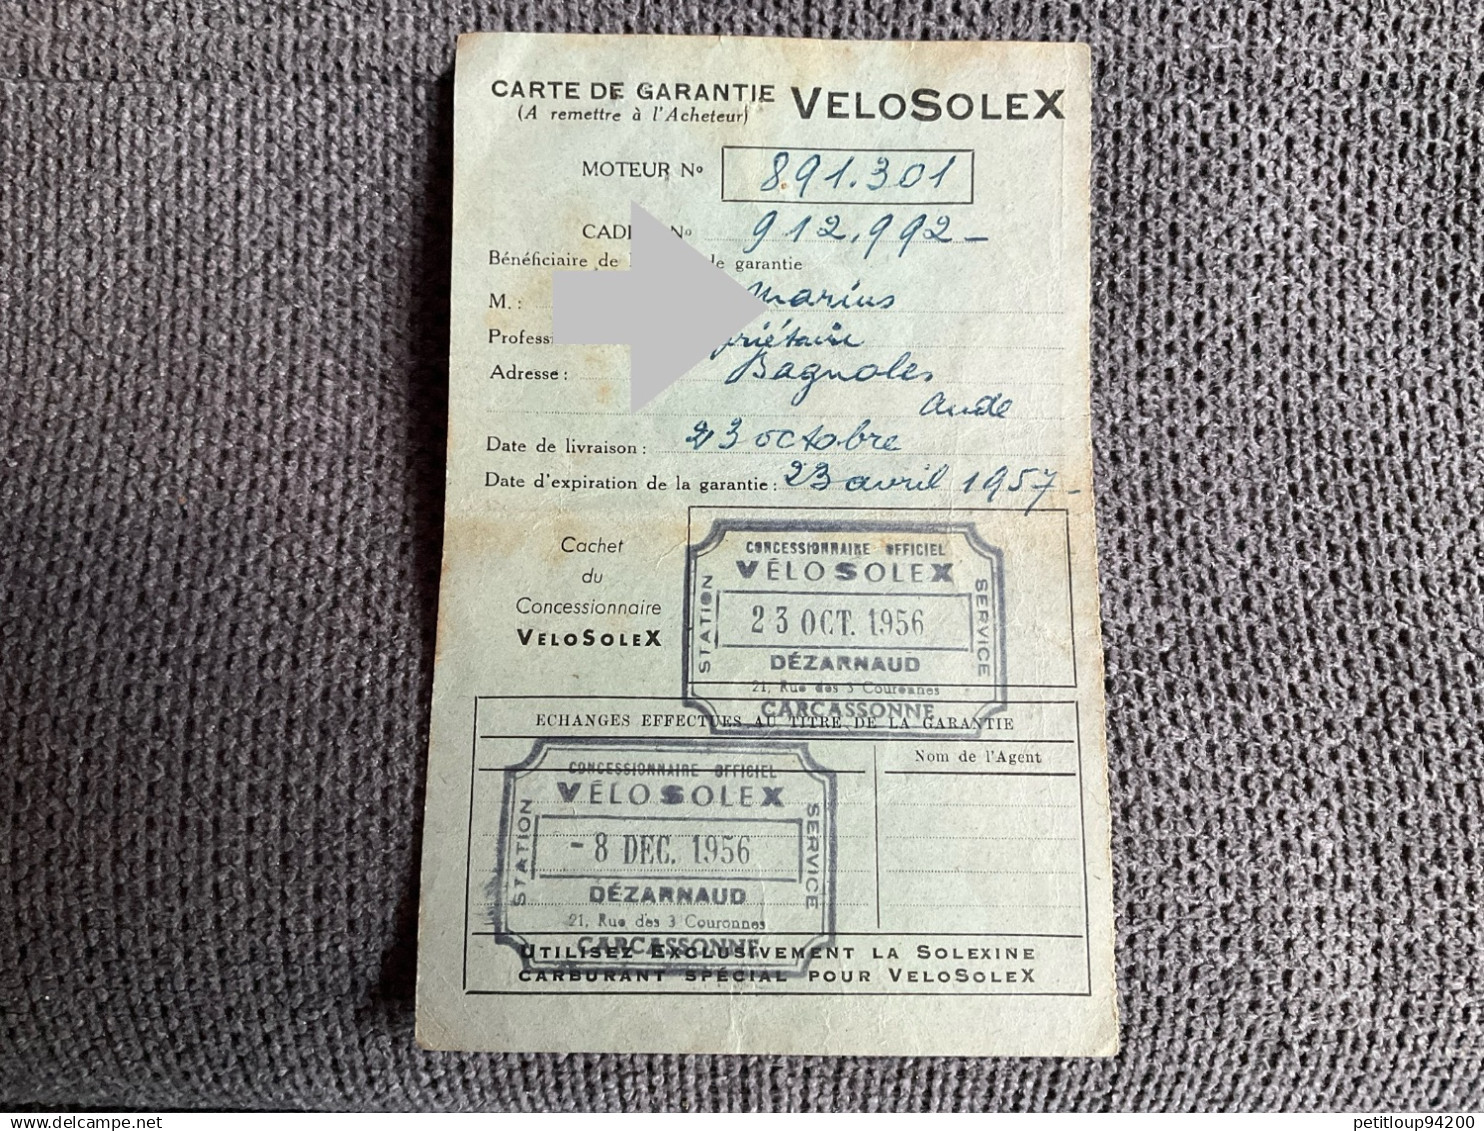 CARTE DE GARANTIE VELOSOLEX
(A remettre à l'Acheteur)
MOTEUR No 891.301
CAD No 912.992-
Bénéficiaire de de garantie
M. : Marius
Profess priétaire
Adresse : Bagnoles
Aude
Date de livraison : 23 octobre
Date d'expiration de la garantie : 23 avril 1957-
Cachet
du
Concessionnaire
VELOSOLEX
CONCESSIONNAIRE OFFICIEL
VÉLOSOLEX
STATION
23 OCT. 1956
SERVICE
DÉZARNAUD
21, Rue des 3 Couronnes
CARCASSONNE
ECHANGES EFFECTUES AU TITRE DE LA GARANTIE
Nom de l'Agent
CONCESSIONNAIRE OFFICIEL
VÉLOSOLEX
STATION
-8 DEC. 1956
SERVICE
DÉZARNAUD
21, Rue des 3 Couronnes
CARCASSONNE
UTILISEZ EXCLUSIVEMENT LA SOLEXINE
CARBURANT SPÉCIAL POUR VELOSOLEX
petitloup94200